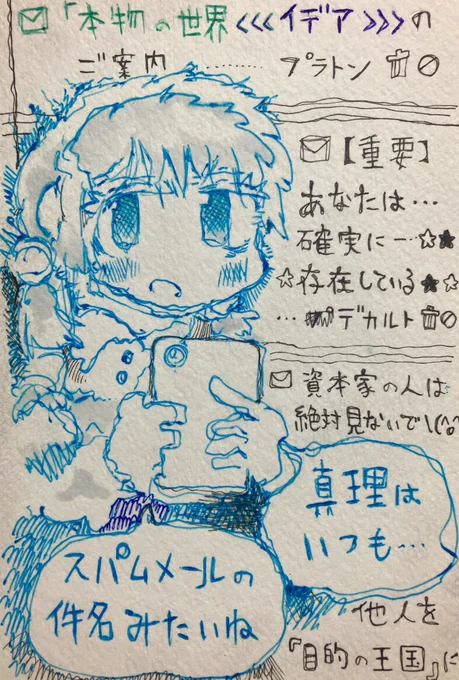 「本物の世界<<<イデア>>>の
ご案内……… プラトン
【重要】
あなたは…
確実に…☆★
☆存在している★☆
… デカルト
資本家の人は
絶対見ないで\(^o^
真理は
いつも…
スパムメールの
件名みたいね
他人を
『目的の王国』に